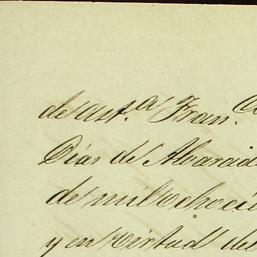 de aut.ª Fran.co
Dias de Alvarad
de mil ochoci
y en virtud de